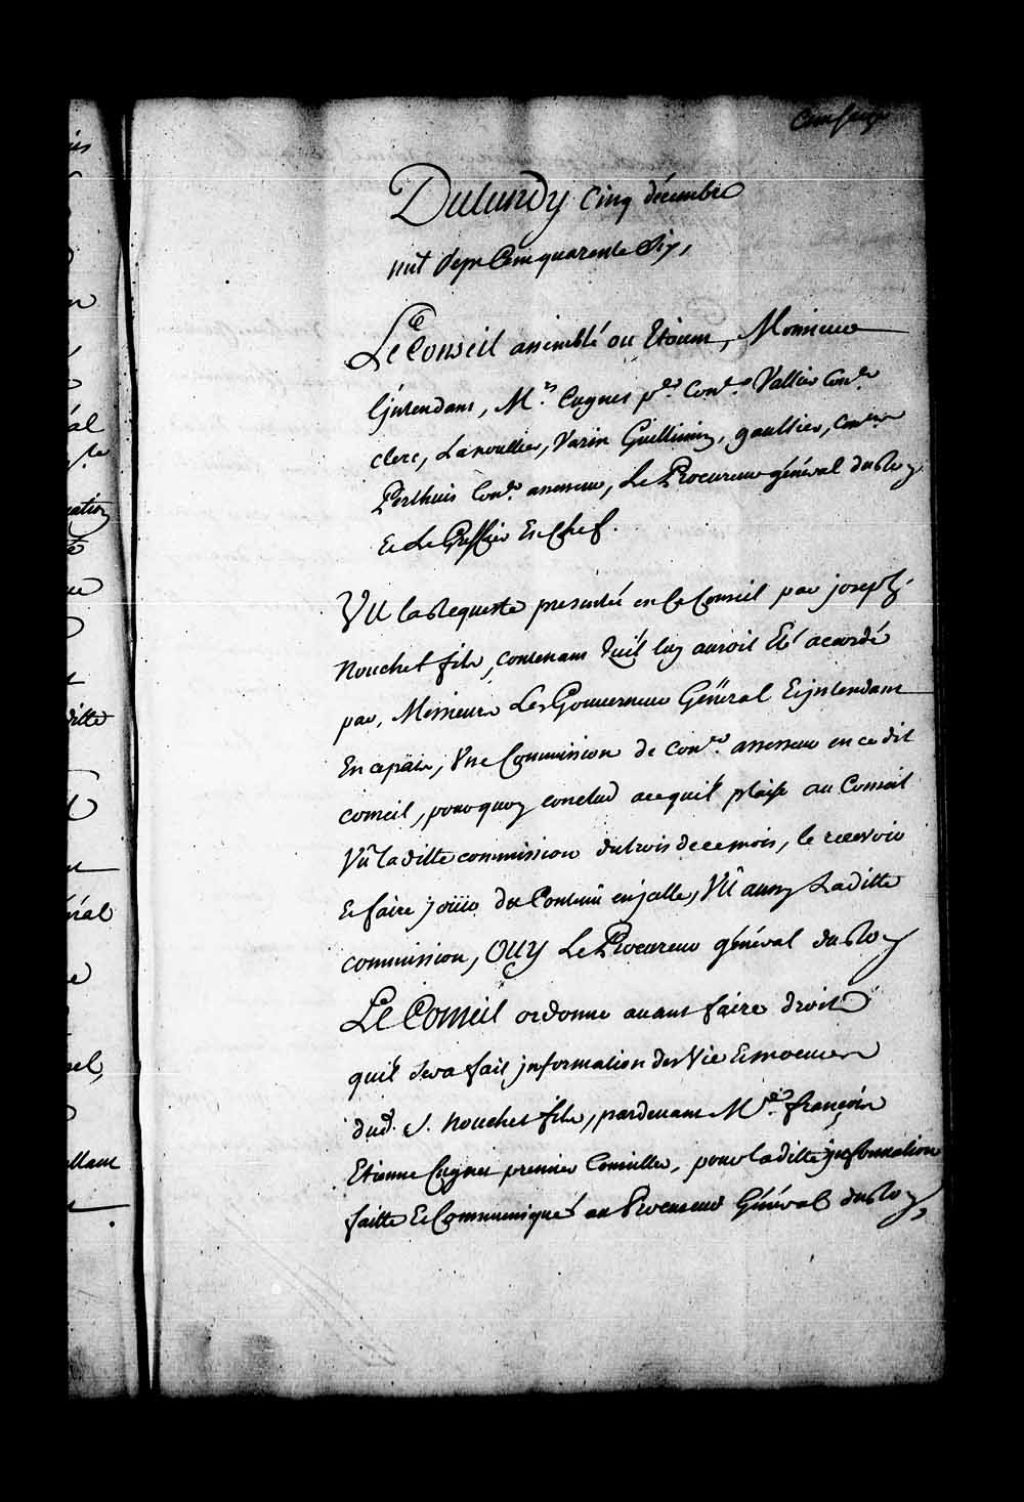 Cent seize
Du Lundy Cinq décembre
mil Sept Cent quarente Six,
Le Conseil assemblé ou Etoient, Monsieur
L'jntendant, M.rs Cugnet p.er Con.er Vallier Con.er
clerc, Lanoullier, Varin Guillimin, gaultier, Con.ers
Perthuis Con.er assesseur, Le Procureur général du Roy
Et Le Greffier En Chef.
VU la Requeste presentée en Ce Conseil par joseph
Nouchet fils, contenant Qu'il luy auroit Eté acordé
par, Messieurs Les Gouverneur Général Et jntendant
En ce païs, Une Commission de Con.er assesseur en ce dit
conseil, pourquoy conclud acequ'il plaise au Conseil
Vû la ditte commission du trois de ce mois, le recevoir
Et faire joüir du Contenû en jcelle, Vû aussy La ditte
commission, OUY Le Procureur général du Roy
LE Conseil ordonne avant faire droit
qu'il Sera fait jnformation des Vie Et moeurs
dud. S. Nouchet fils, pardevant M.e françois
Etienne Cugnet premier Conseiller, pour la ditte jnformation
faitte Et Communiquée au Procureur Général du Roy,
is
al
ation
ditte
éral
nel,
llant